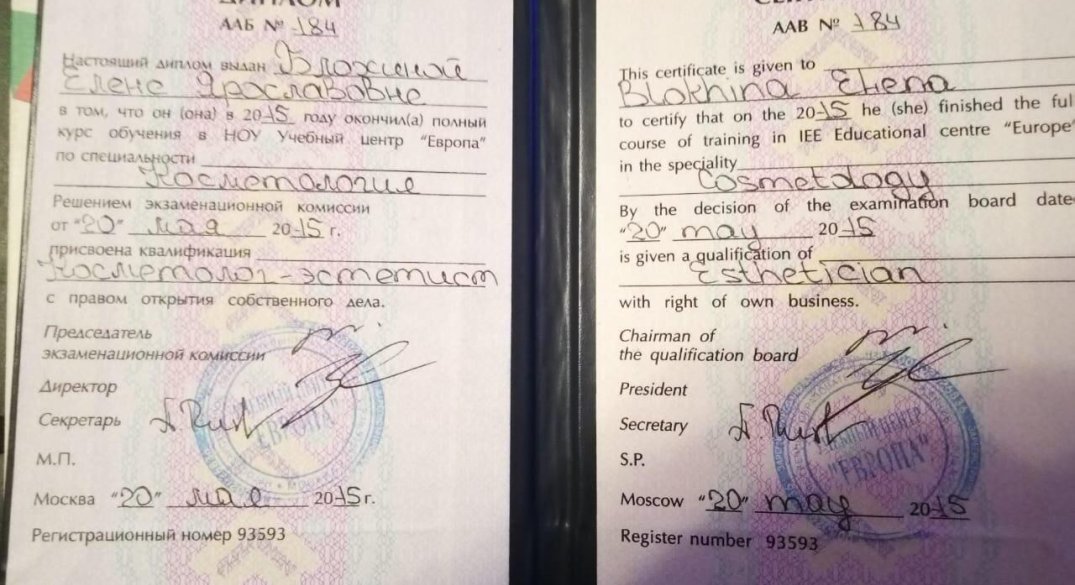 ДИПЛОМ
ААБ № 184
Настоящий диплом выдан Блохиной
Елене Ярославовне
в том, что он (она) в 2015 году окончил(а) полный
курс обучения в НОУ Учебный центр "Европа"
по специальности
Косметология
Решением экзаменационной комиссии
от "20" мая 2015 г.
присвоена квалификация
Косметолог-эстетист
с правом открытия собственного дела.
Председатель
экзаменационной комиссии
Директор
Секретарь
М.П.
Москва "20" мая 2015 г.
Регистрационный номер 93593
"ЕВРОПА"
AAB № 184
This certificate is given to
Blokhina Elena
to certify that on the 2015 he (she) finished the full
course of training in IEE Educational centre "Europe"
in the speciality
Cosmetology
By the decision of the examination board date
"20" may 2015
is given a qualification of
Esthetician
with right of own business.
Chairman of
the qualification board
President
Secretary
S.P.
Moscow "20" may 2015
Register number 93593
УЧЕБНЫЙ ЦЕНТР
"ЕВРОПА"